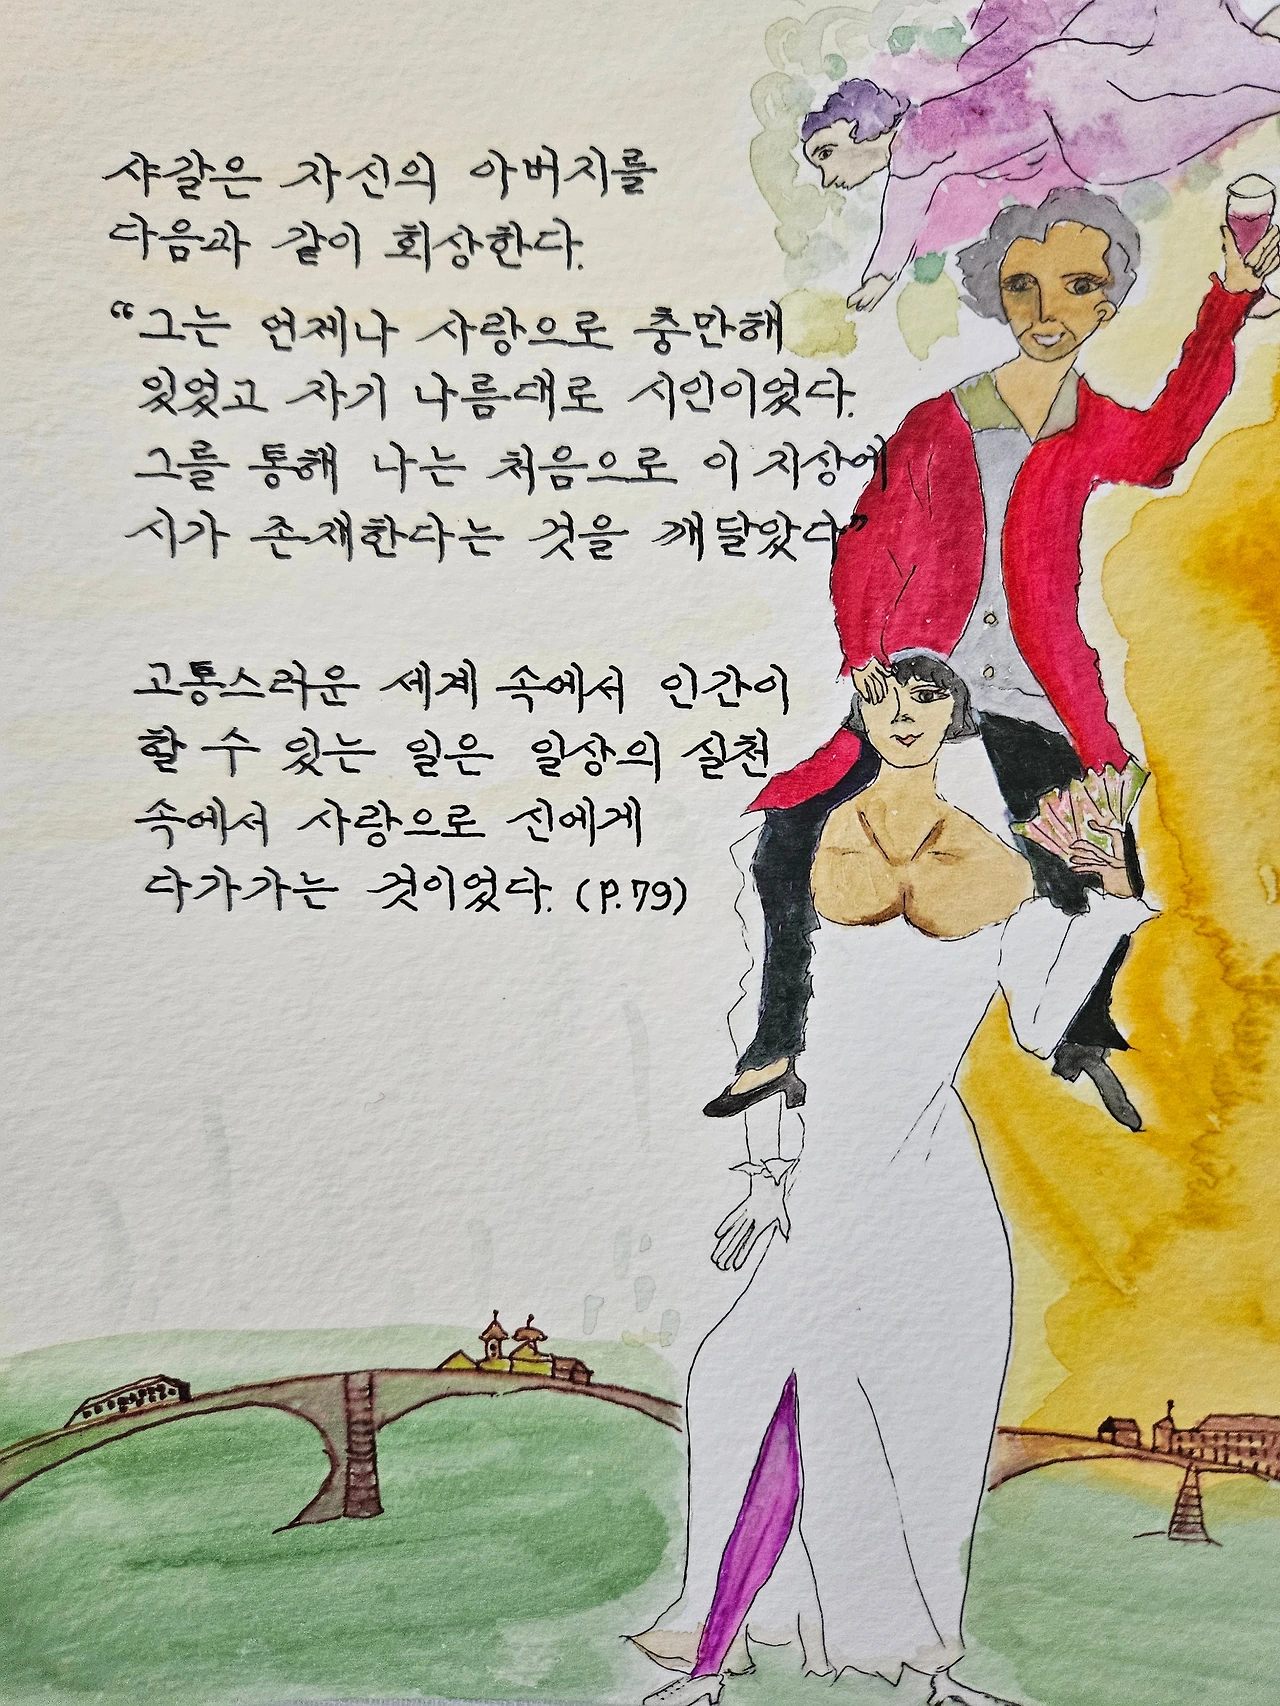 샤갈은 자신의 아버지를
다음과 같이 회상한다.
“그는 언제나 사랑으로 충만해
있었고 자기 나름대로 시인이었다.
그를 통해 나는 처음으로 이 지상에
시가 존재한다는 것을 깨달았다”
고통스러운 세계 속에서 인간이
할 수 있는 일은 일상의 실천
속에서 사랑으로 신에게
다가가는 것이었다. (P.79)